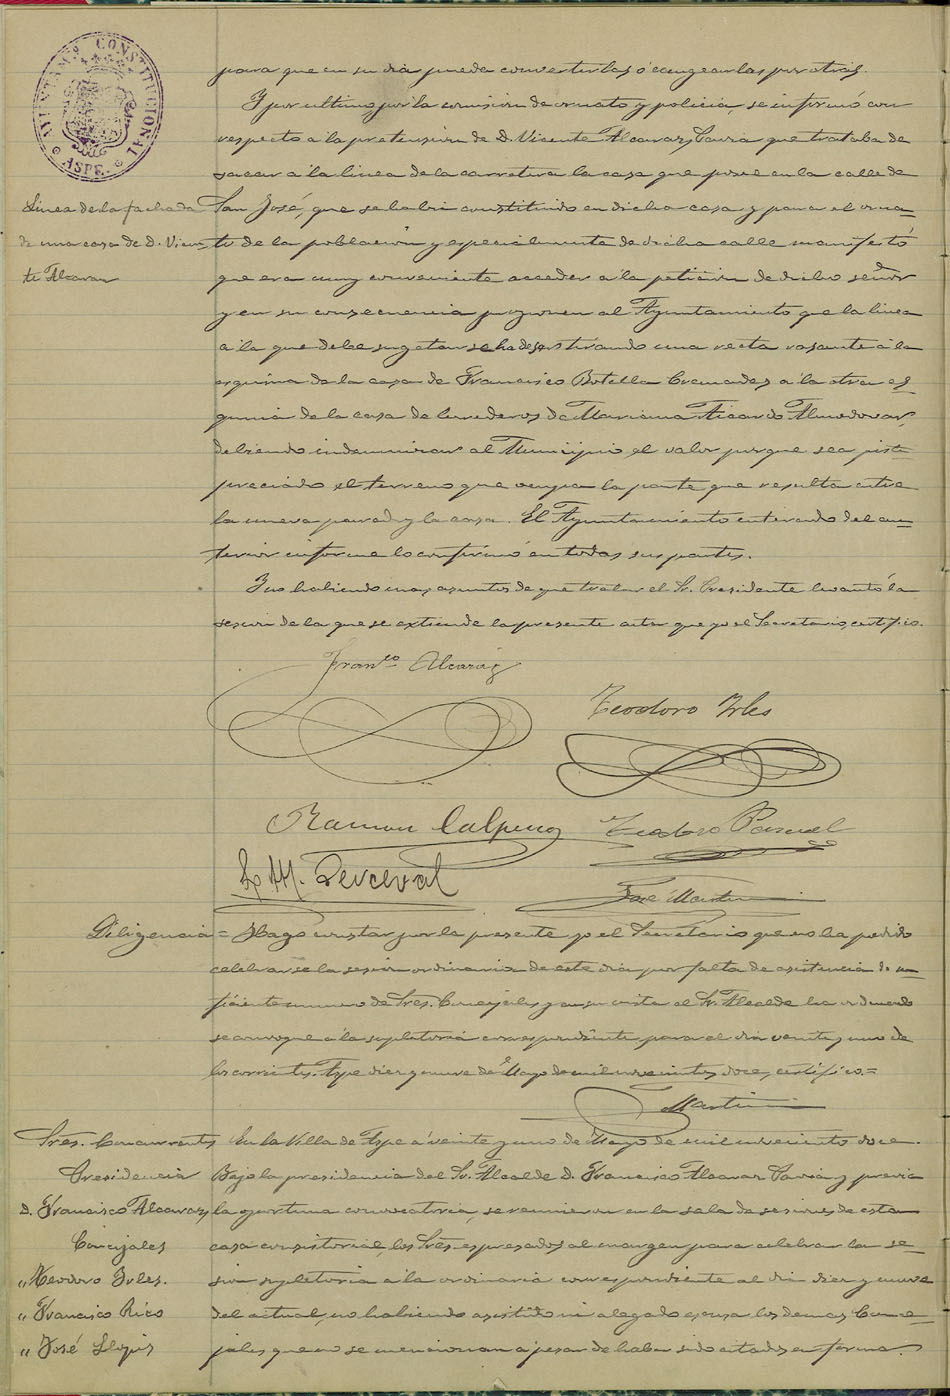 AYUNTAMTº CONSTITUCIONAL
ASPE.
para que en su dia pueda convertirlas ó cangearlas por otras.
Y por ultimo por la comision de ornato y policia, se informó con
respecto a la pretension de D. Vicente Alcaraz Pavia que trataba de
sacar á la linea de la carretera la casa que posee en la calle de
Linea de la fachada
de una casa de D. Vicen-
te Alcaraz
San José, que se habia constituido en dicha casa y para el orna-
to de la poblacion y especialmente de dicha calle manifestó
que era muy conveniente acceder a la peticion de dicho señor
y en su consecuencia proponen al Ayuntamiento que la linea
a la que debe sugetarse ha de ser tirando una recta rasante á la
esquina de la casa de Francisco Botella Cremades a la otra es-
quina de la casa de herederos de Mariana Ticardo Almodovar,
debiendo indemnizar al Municipio el valor porque sea justi-
preciado el terreno que ocupa la parte que resulta entre
la nueva pared y la casa. El Ayuntamiento enterado del an-
terior informe lo confirmó en todas sus partes.
Y no habiendo mas asuntos de que tratar el Sr. Presidente levantó la
sesion de la que se extiende la presente acta que yo el Secretario, certifico.
Franco Alcaráz
Teodoro Irles
Ramon Calpena
Teodoro Pascual
L. M. Perceval
José Martin
Diligencia = Hago constar por la presente yo el Secretario que no ha podido
celebrarse la sesion ordinaria de este dia por falta de asistencia de su-
ficiente numero de Sres. Concejales y en su vista el Sr. Alcalde ha ordenado
se convoque á la supletoria correspondiente para el dia veinte y uno de
los corrientes. Aspe diez y nueve de Mayo de mil novecientos doce, certifico =
Martin
Sres. Concurrentes
Presidencia
D. Francisco Alcaraz
Concejales
" Teodoro Irles.
" Francisco Rico
" José Llopis
En la Villa de Aspe á veinte y uno de Mayo de mil novecientos doce.
Bajo la presidencia del Sr. Alcalde D. Francisco Alcaraz Pavia y previa
la oportuna convocatoria, se reunieron en la sala de sesiones de esta
casa consistorial, los Sres. espresados al margen para celebrar la se-
sion supletoria a la ordinaria correspondiente al dia diez y nueve
del actual, no habiendo asistido ni alegado escusa los demas Conce-
jales que no se mencionan á pesar de haber sido citados en forma.